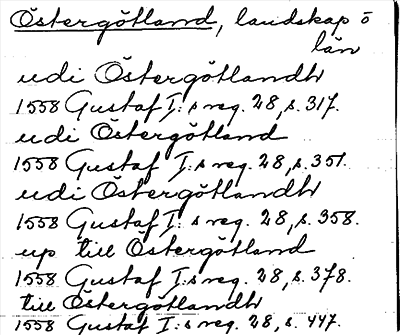 Östergötland, landskap o
län
udi Östergötlandh
1558 Gustaf I:s reg. 28, s. 317.
udi Östergötland
1558 Gustaf I:s reg. 28, s. 351.
udi Östergötlandh
1558 Gustaf I:s reg. 28, s. 358.
up till Östergötland
1558 Gustaf I:s reg. 28, s. 378.
till Östergötlandh
1558 Gustaf I:s reg. 28, s. 447.